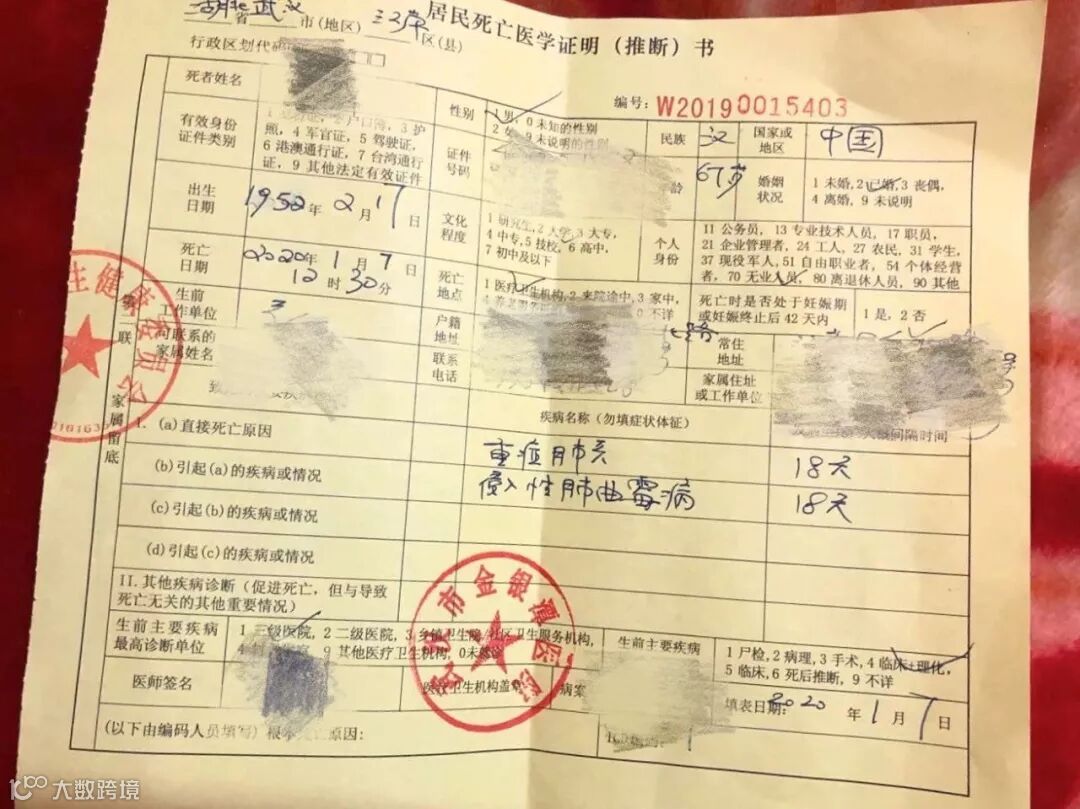 湖北省武汉市(地区)江岸区(县)
居民死亡医学证明(推断)书
行政区划代码
编号:W20190015403
死者姓名
性别
1男,0未知的性别
2女,9未说明的性别
民族
汉
国家或
地区
中国
有效身份
证件类别
户口簿,3护
照,4军官证,5驾驶证,
6港澳通行证,7台湾通行
证,9其他法定有效证件
证件
号码
龄
67岁
婚姻
状况
1未婚,2已婚,3丧偶,
4离婚,9未说明
出生
日期
1952年2月17日
文化
程度
1研究生,2大学,3大专,
4中专,5技校,6高中,
7初中及以下
个人
身份
11公务员,13专业技术人员,17职员,
21企业管理者,24工人,27农民,31学生,
37现役军人,51自由职业者,54个体经营
者,70无业人员,80离退休人员,90其他
死亡
日期
2020年1月7日
12时30分
死亡
地点
1医疗卫生机构,2来院途中,3家中,
0不详
死亡时是否处于妊娠期
或妊娠终止后42天内
1是,2否
生前
工作单位
无
户籍
地址
路
常住
地址
号
可联系的
家属姓名
联系
电话
家属住址
或工作单位
疾病名称(勿填症状体征)
间隔时间
I.(a)直接死亡原因
重症肺炎
18天
(b)引起(a)的疾病或情况
侵入性肺曲霉病
18天
(c)引起(b)的疾病或情况
(d)引起(c)的疾病或情况
II.其他疾病诊断(促进死亡,但与导致
死亡无关的其他重要情况)
生前主要疾病
最高诊断单位
1三级医院,2二级医院,3乡镇卫生院/社区卫生服务机构,
9其他医疗卫生机构,0未就诊
生前主要疾病
1尸检,2病理,3手术,4临床+理化,
5临床,6死后推断,9不详
医师签名
医疗卫生机构盖章
病案
填表日期:2020年1月7日
(以下由编码人员填写)根本死亡原因:
ICD编码:
联
家属留底
生健康委员会
市金银潭医院
大数跨境